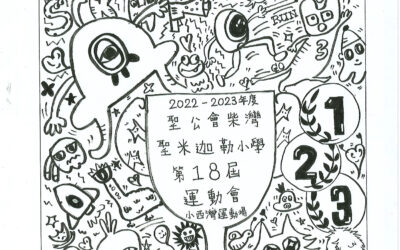 RUN
3
2022-2023年度
聖公會柴灣
聖米迦勒小學
第18屆
運動會
小西灣運動場
1
2
3